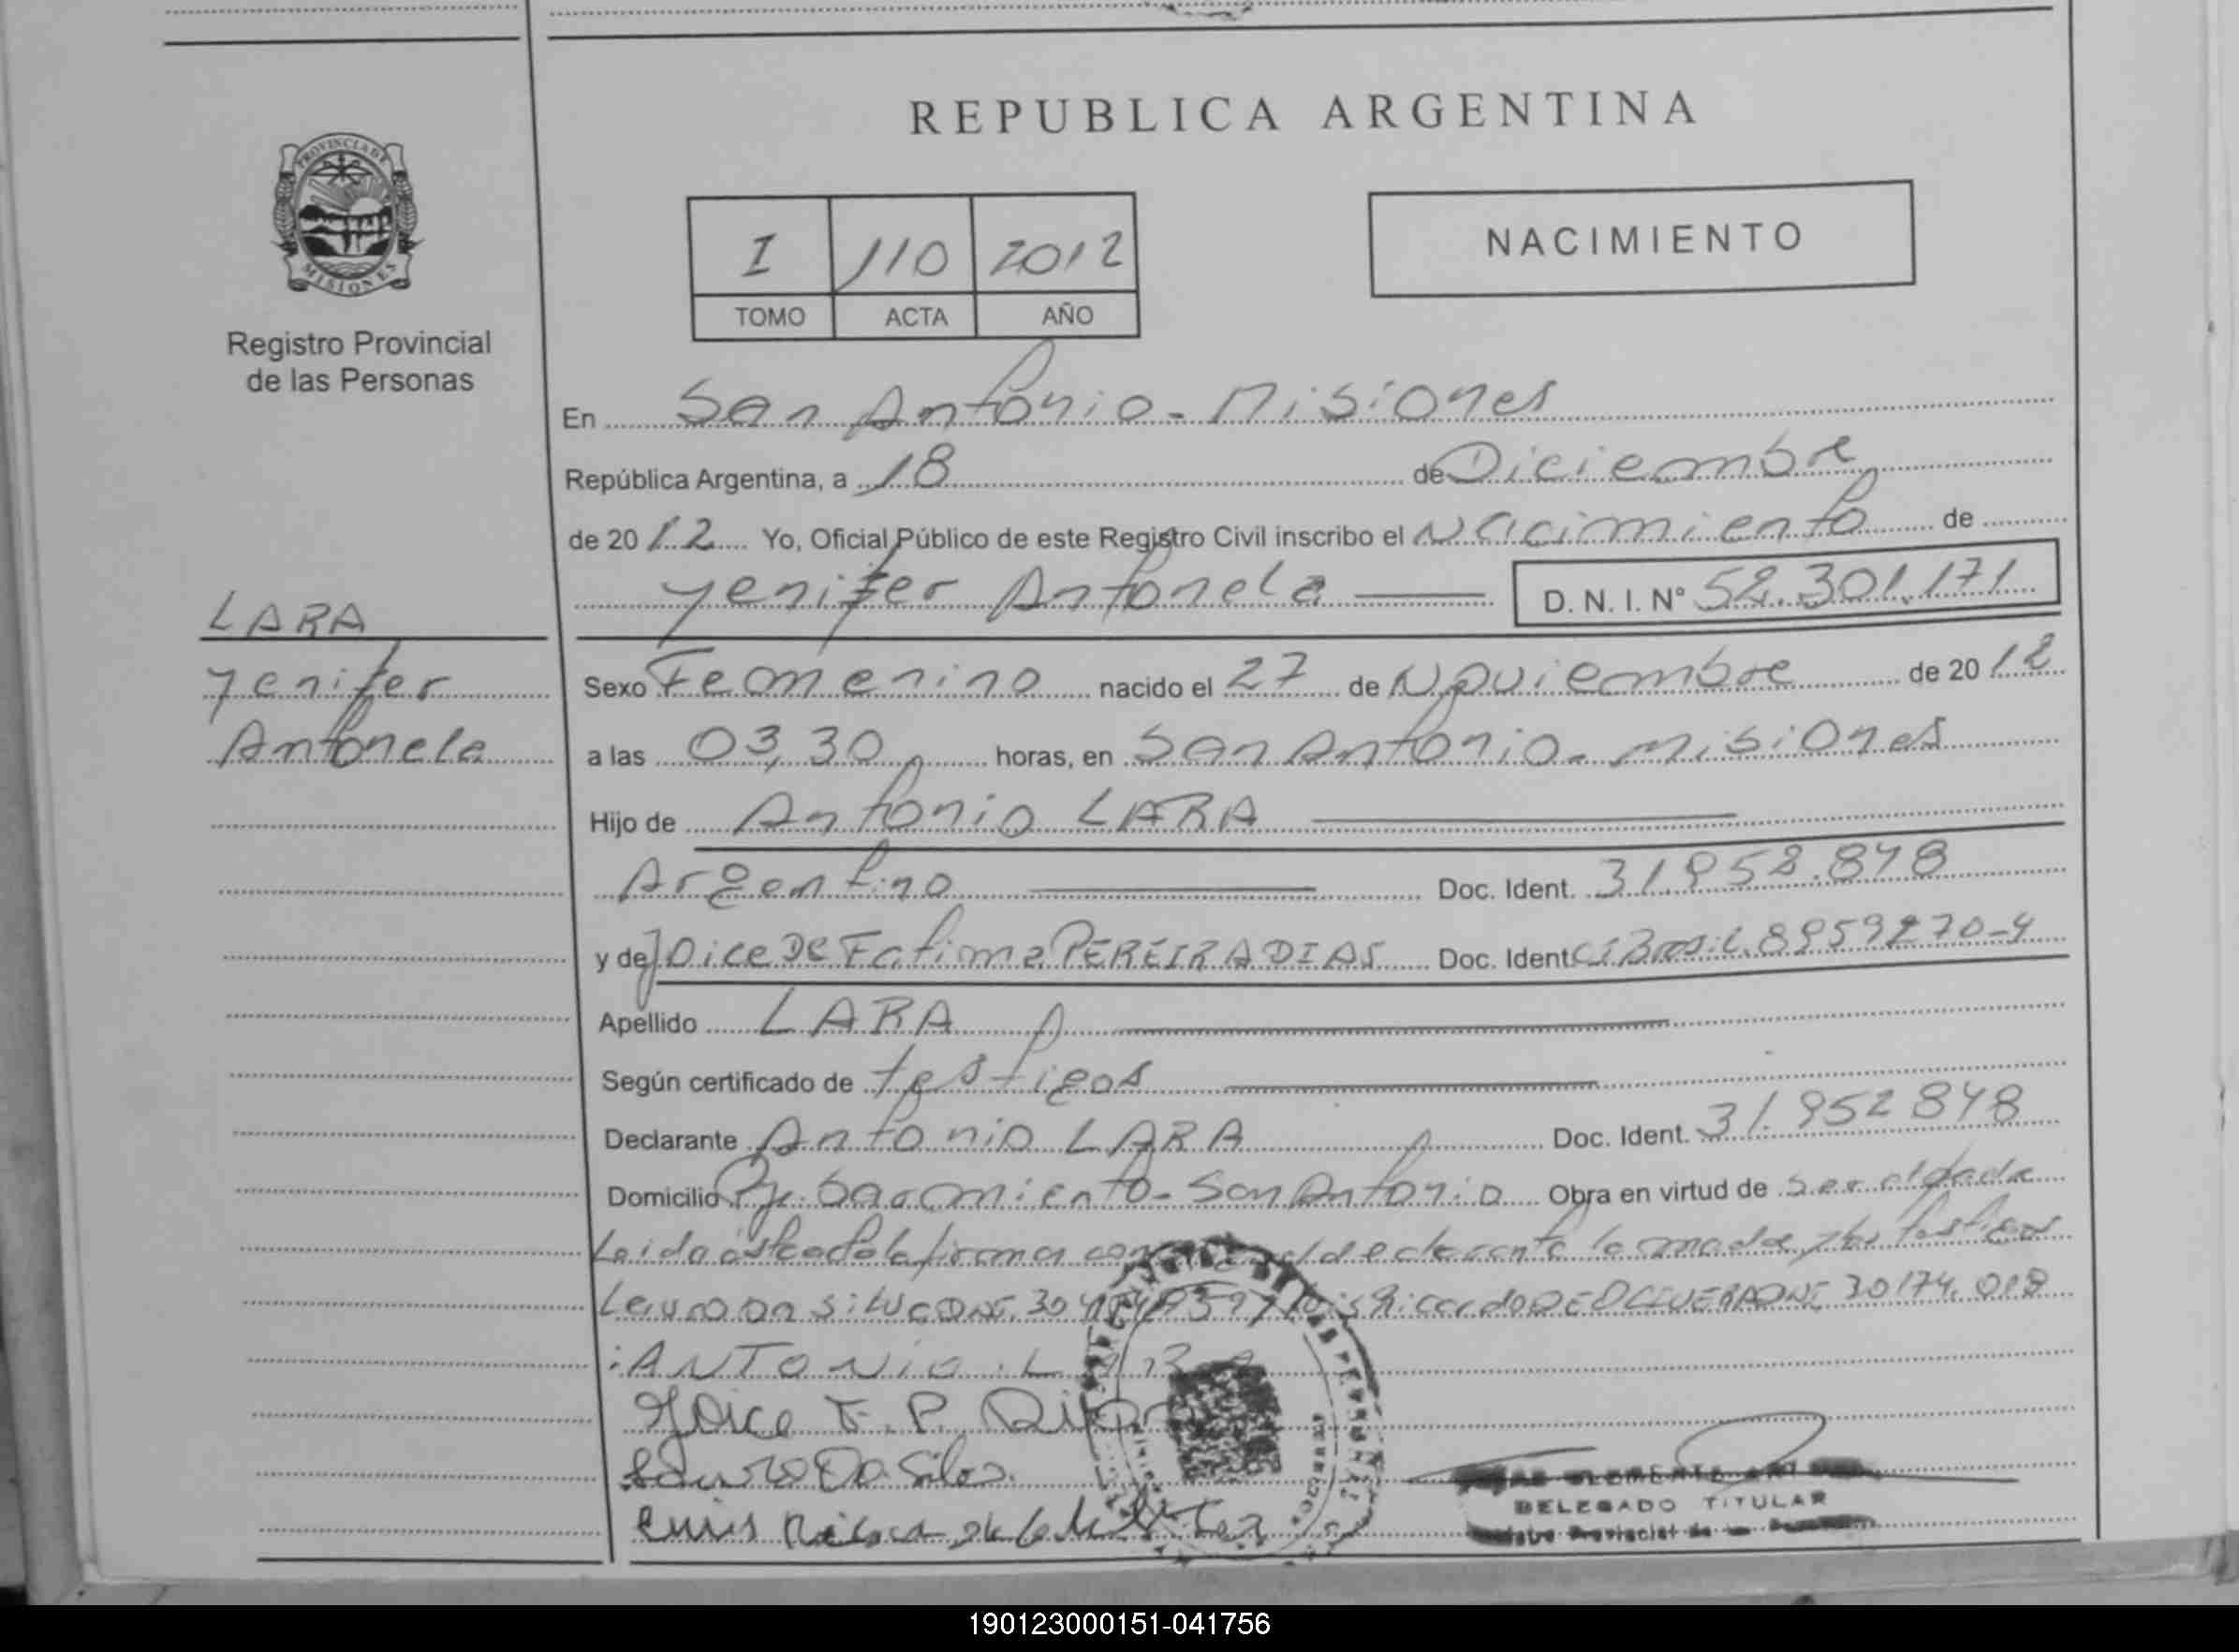 REPUBLICA ARGENTINA
PROVINCIA DE MISIONES
Registro Provincial
de las Personas
I 110 2012
TOMO ACTA AÑO
NACIMIENTO
En San Antonio - Misiones
República Argentina, a 18 de Diciembre
de 2012 Yo, Oficial Público de este Registro Civil inscribo el Nacimiento de
yenifer Antonela D. N. I. N° 52.301.171
LARA
yenifer
Antonela
Sexo Femenino nacido el 27 de Noviembre de 2012
a las 03,30 horas, en San Antonio - Misiones
Hijo de Antonio LARA
Argentino Doc. Ident. 31.952.848
y de Joice De Fatima PEREIRA DIAS Doc. Ident CI Brasil 8959270-4
Apellido LARA
Según certificado de testigos
Declarante Antonio LARA Doc. Ident. 31.952848
Domicilio Pje. Sarmiento - San Antonio Obra en virtud de ser
Leida el acta la firman el declarante la madre y los testigos
30174.018
ANTONIO LARA
Joice F. P. Dias
Lauro Da Silva
Luis
DELEGADO TITULAR
Registro Provincial de las Personas
190123000151-041756